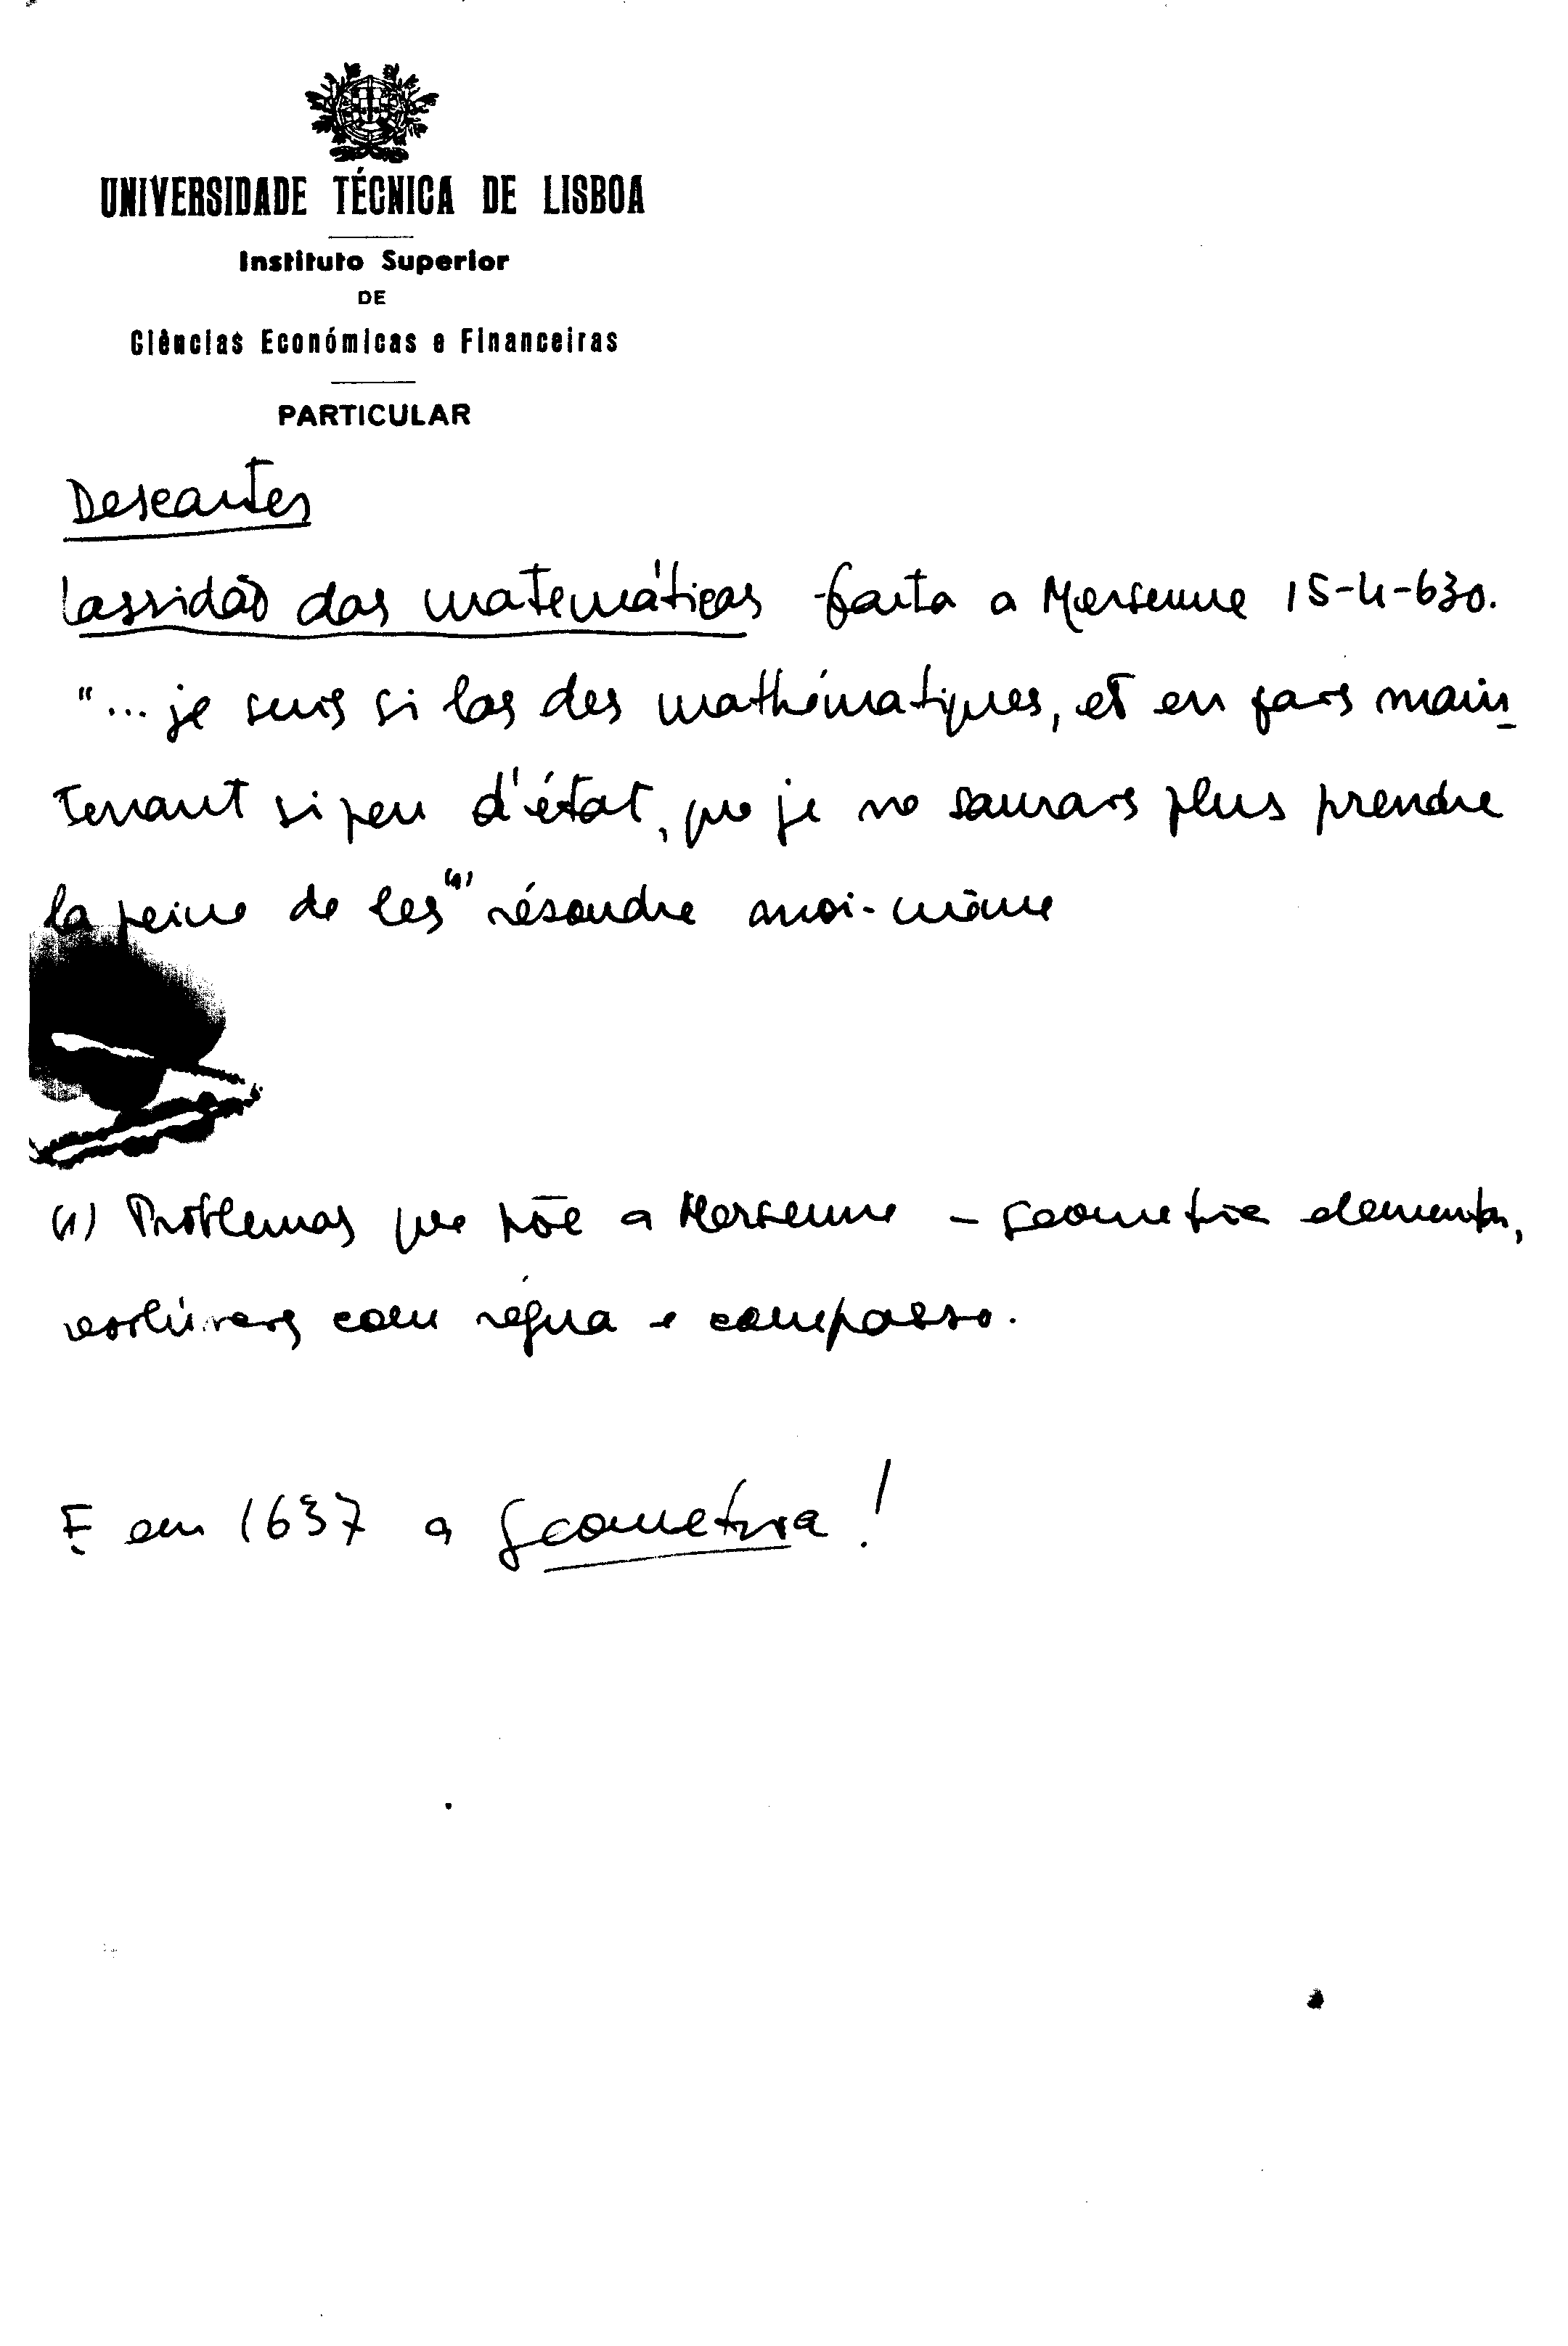 UNIVERSIDADE TÉCNICA DE LISBOA
Instituto Superior
DE
Ciências Económicas e Financeiras
PARTICULAR
Descartes
lassidão das matemáticas carta a Mersenne 15-4-630.
"... je suis si las des mathématiques, et en fais main-
tenant si peu d'état, que je ne saurais plus prendre
la peine de les (1) résoudre moi-même
(1) Problemas que põe a Mersenne – geometria elementar,
resolúveis com régua e compasso.
E em 1637 a Geometria!